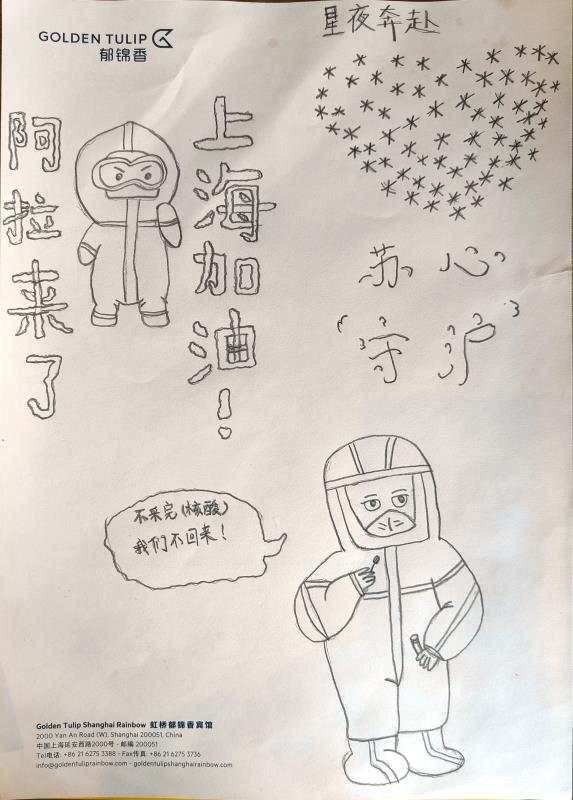 GOLDEN TULIP
郁锦香
星夜奔赴
阿拉来了
上海加油！
苏心
“守沪”
不采完（核酸）
我们不回来！
Golden Tulip Shanghai Rainbow 虹桥郁锦香宾馆
2000 Yan An Road (W), Shanghai 200051, China
中国上海延安西路2000号 · 邮编 200051
Tel电话: +86 21 6275 3388 - Fax传真: +86 21 6275 3736
info@goldentuliprainbow.com - goldentulipshanghairainbow.com